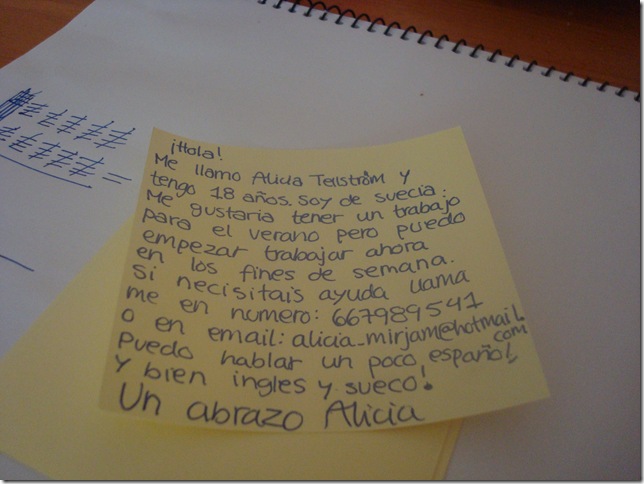 ¡Hola!
Me llamo Alicia Tellström y
tengo 18 años. soy de suecia.
Me gustaria tener un trabajo
para el verano pero puedo
empezar trabajar ahora
en los fines de semana.
Si necisitais ayuda llama
me en numero: 667989541
o en email: alicia_mirjam@hotmail.
com
Puedo hablar un poco español
y bien ingles y sueco!
Un abrazo Alicia